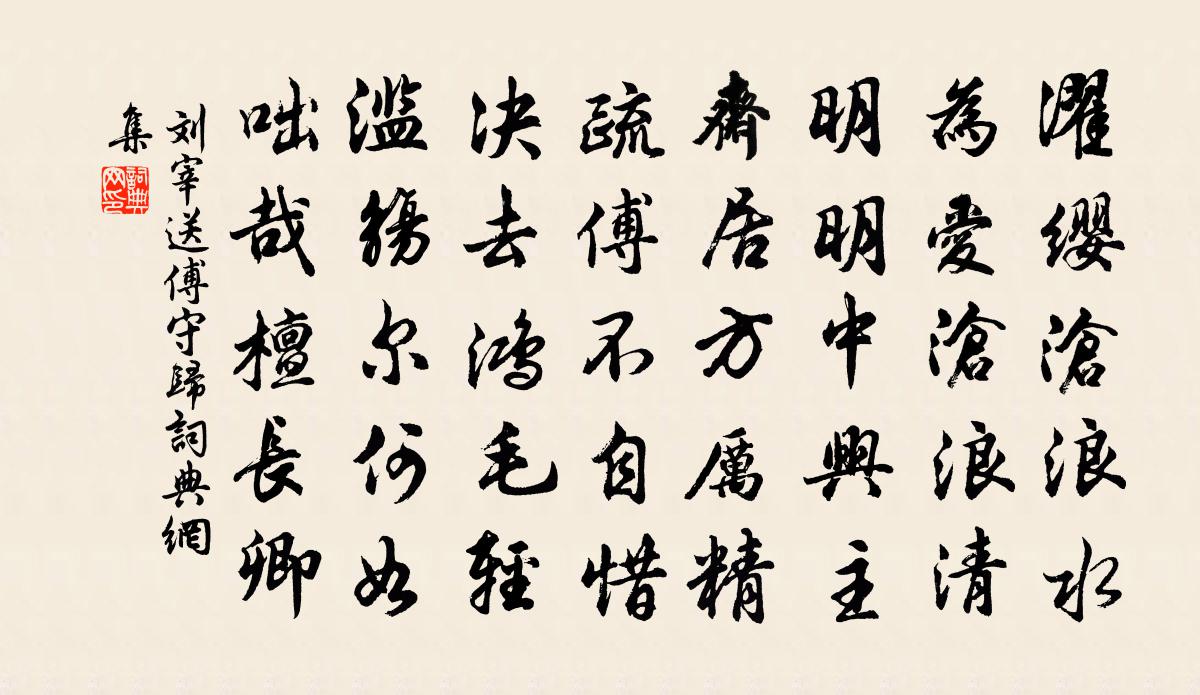 濯缨滄浪水
為愛滄浪清
明明中興主
齋居方厲精
疏傅不自惜
决去鸿毛輕
滥觴尔何如
咄哉檀長卿
刘宰送傅守歸詞典網
集
詞典网印